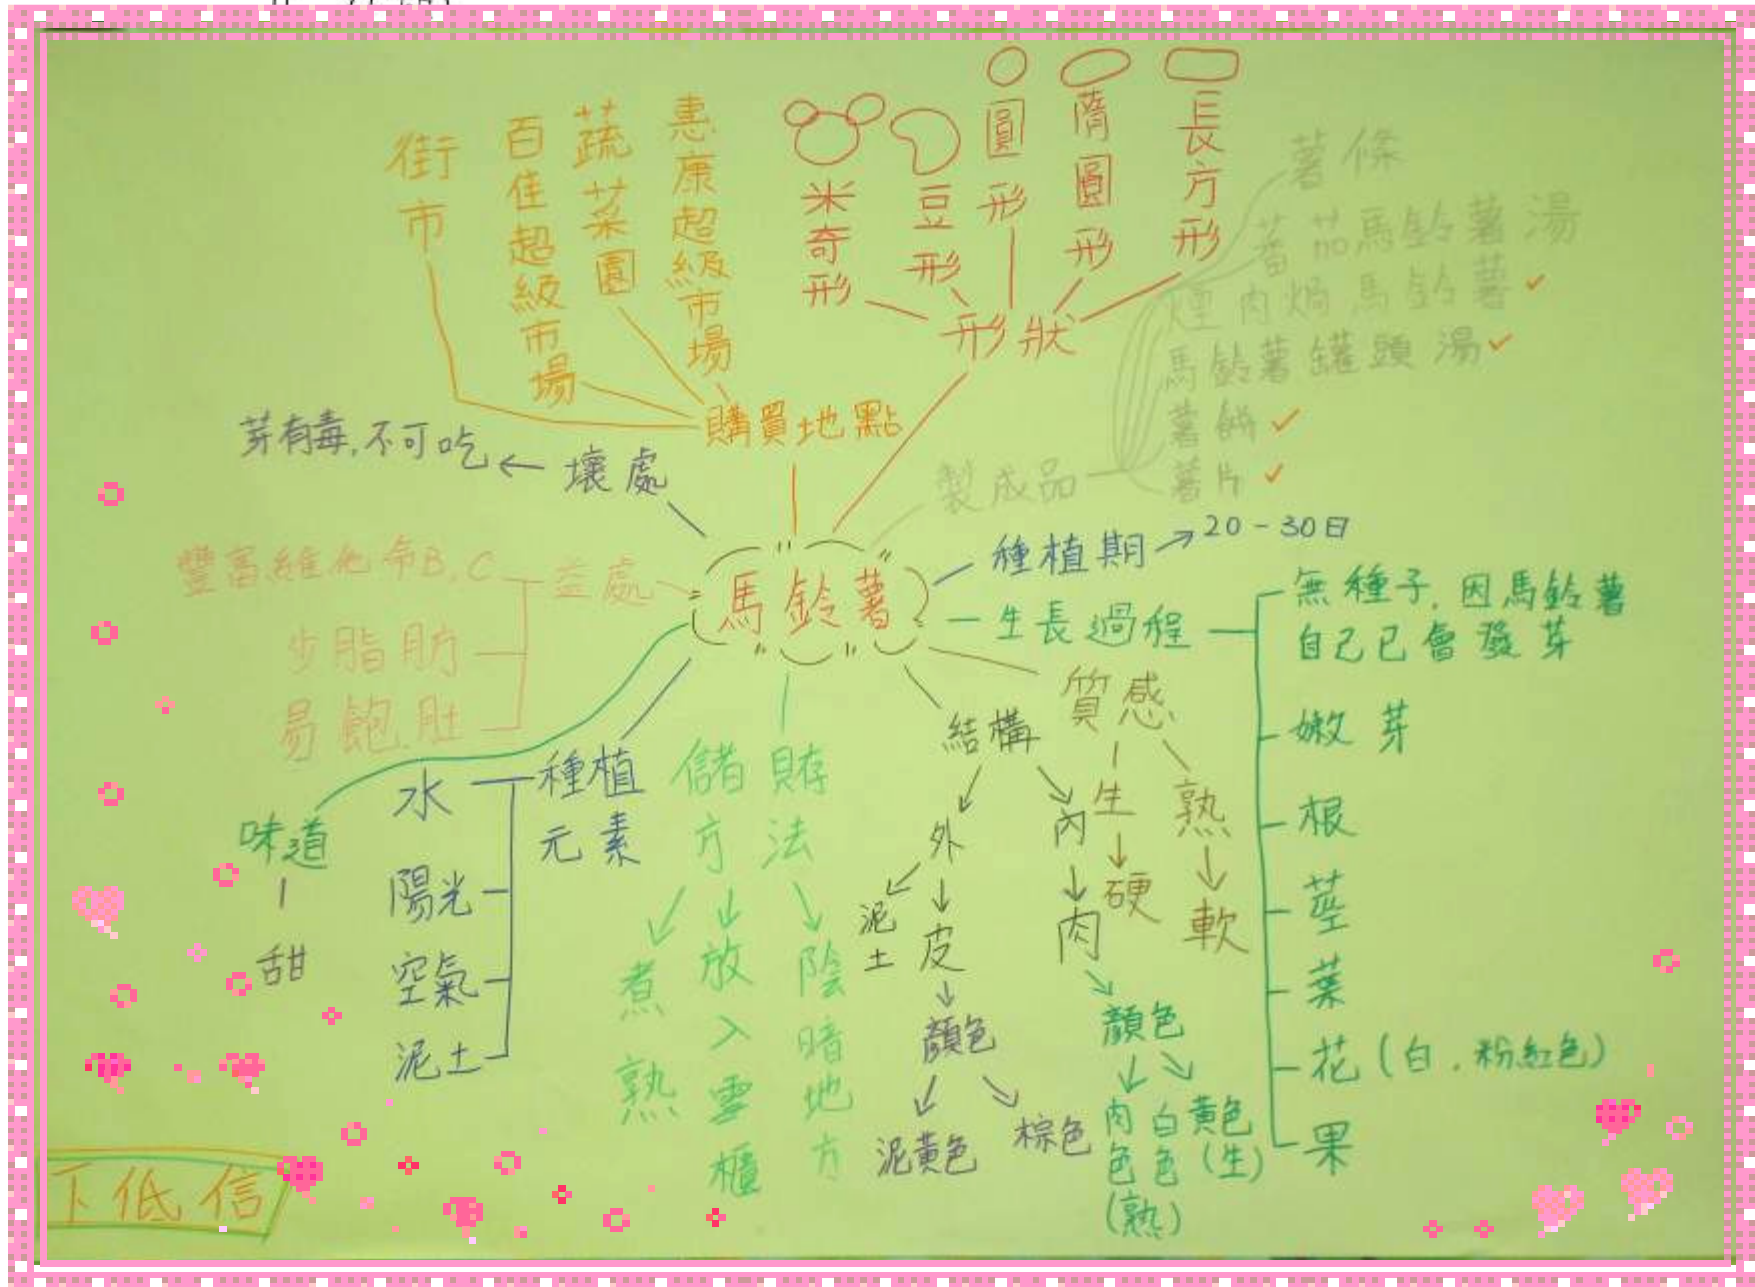 街市
百佳超級市場
蔬菜園
惠康超級市場
購買地點
米奇形
豆形
圓形
隋圓形
長方形
形狀
薯條
蕃茄馬鈴薯湯
煙肉焗馬鈴薯
馬鈴薯罐頭湯
薯餅
薯片
製成品
芽有毒,不可吃
壞處
豐富維他命B,C
益處
少脂肪
易飽肚
馬鈴薯
種植期
20-30日
生長過程
無種子,因馬鈴薯
自己已會發芽
嫩芽
根
莖
葉
花(白,粉紅色)
果
質感
生
硬
熟
軟
結構
外
泥土
皮
顏色
泥黃色
棕色
內
肉
顏色
肉色(熟)
白色
黃色
(生)
儲財
方法
煮熟
放入雪櫃
陰暗地方
種植
元素
水
陽光
空氣
泥土
味道
甜
下低信